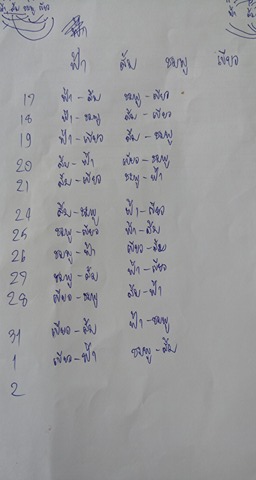 ฟ้า
ฟ้า ส้ม ชมพู เขียว
17 ฟ้า - ส้ม ชมพู - เขียว
18 ฟ้า - ชมพู ส้ม - เขียว
19 ฟ้า - เขียว ส้ม - ชมพู
20 ส้ม - ฟ้า เขียว - ชมพู
21 ส้ม - เขียว ชมพู - ฟ้า
24 ส้ม - ชมพู ฟ้า - เขียว
25 ชมพู - เขียว ฟ้า - ส้ม
26 ชมพู - ฟ้า เขียว - ส้ม
27 ชมพู - ส้ม ฟ้า - เขียว
28 เขียว - ชมพู ส้ม - ฟ้า
31 เขียว - ส้ม ฟ้า - ชมพู
1 เขียว - ฟ้า ชมพู - ส้ม
2